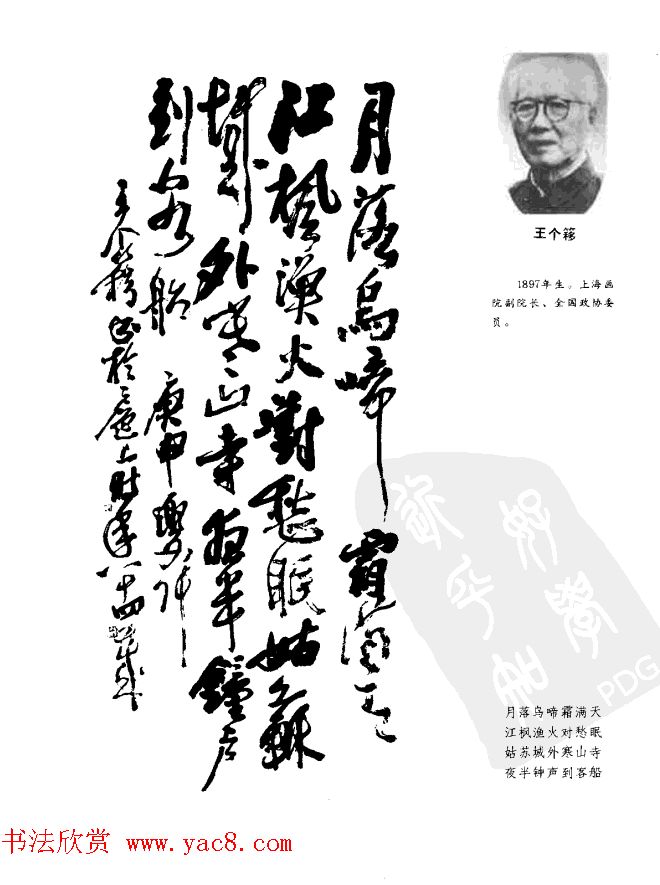 月落烏啼霜滿天
江楓漁火對愁眠姑蘇
城外寒山寺夜半鐘声
到客船 庚申
王个簃書於滬上時年八十四歲
王个簃
1897年生。上海画
院副院长、全国政协委
员。
PDG
月落乌啼霜满天
江枫渔火对愁眠
姑苏城外寒山寺
夜半钟声到客船
书法欣赏 www.yac8.com